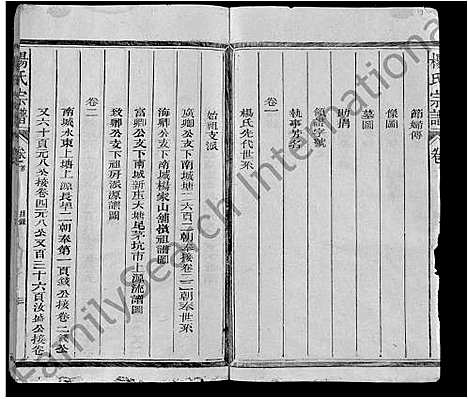 楊氏宗譜
卷
節婦傳
像圖
墓圖
助捐
領譜字號
執事芳名
卷一
楊氏先代世系
始祖支派
廣卿公支下南城塘二頁二朝奉接卷二二朝奉世系
海卿公支下南城楊家山舖墩祖譜圖
富卿公支下南城新庄大塘尾茅坑市上源流譜圖
致卿公支下祖房派源譜圖
卷二
南城永東上塘上源長早二朝奉第一頁錢公接卷二錢公
又六十頁元八公接卷四元八公又百三十六頁汝城公接卷
楊氏宗譜
卷首
目錄
三
FamilySearch International